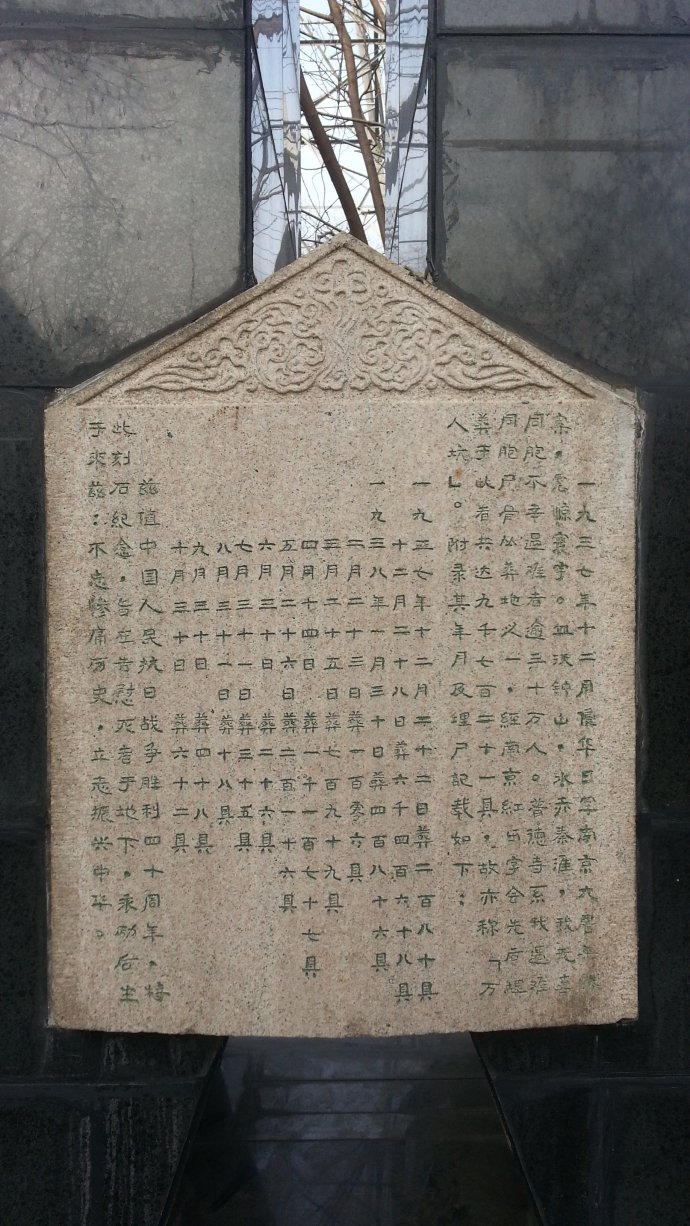 一九三七年十二月侵华日军南京大屠
案，震惊寰宇。血沃钟山，水赤秦淮，我无辜
同胞不幸遇难者逾三十万人。普德寺系我遇难
同胞尸骨丛葬地之一，经南京红卍字会先后埋
葬于此者共达九千七百二十一具，故亦称「万
人坑」。附录其年月及埋尸记载如下：
一九三七年十二月二十二日葬二百八十具
十二月二十八日葬六千四百六十八具
一九三八年一月三十日葬四百八十六具
二月二十三日葬一百零六具
三月二十五日葬七百九十九具
四月十四日葬一千一百七十七具
五月二十六日葬二百一十六具
六月三十日葬二十六具
七月三十一日葬三十五具
八月三十一日葬十八具
九月三十日葬四十八具
十月三十日葬六十二具
兹值中国人民抗日战争胜利四十周年，特
此刻石纪念，旨在告慰死者于地下，永励后生
于来兹：不忘惨痛历史，立志振兴中华。